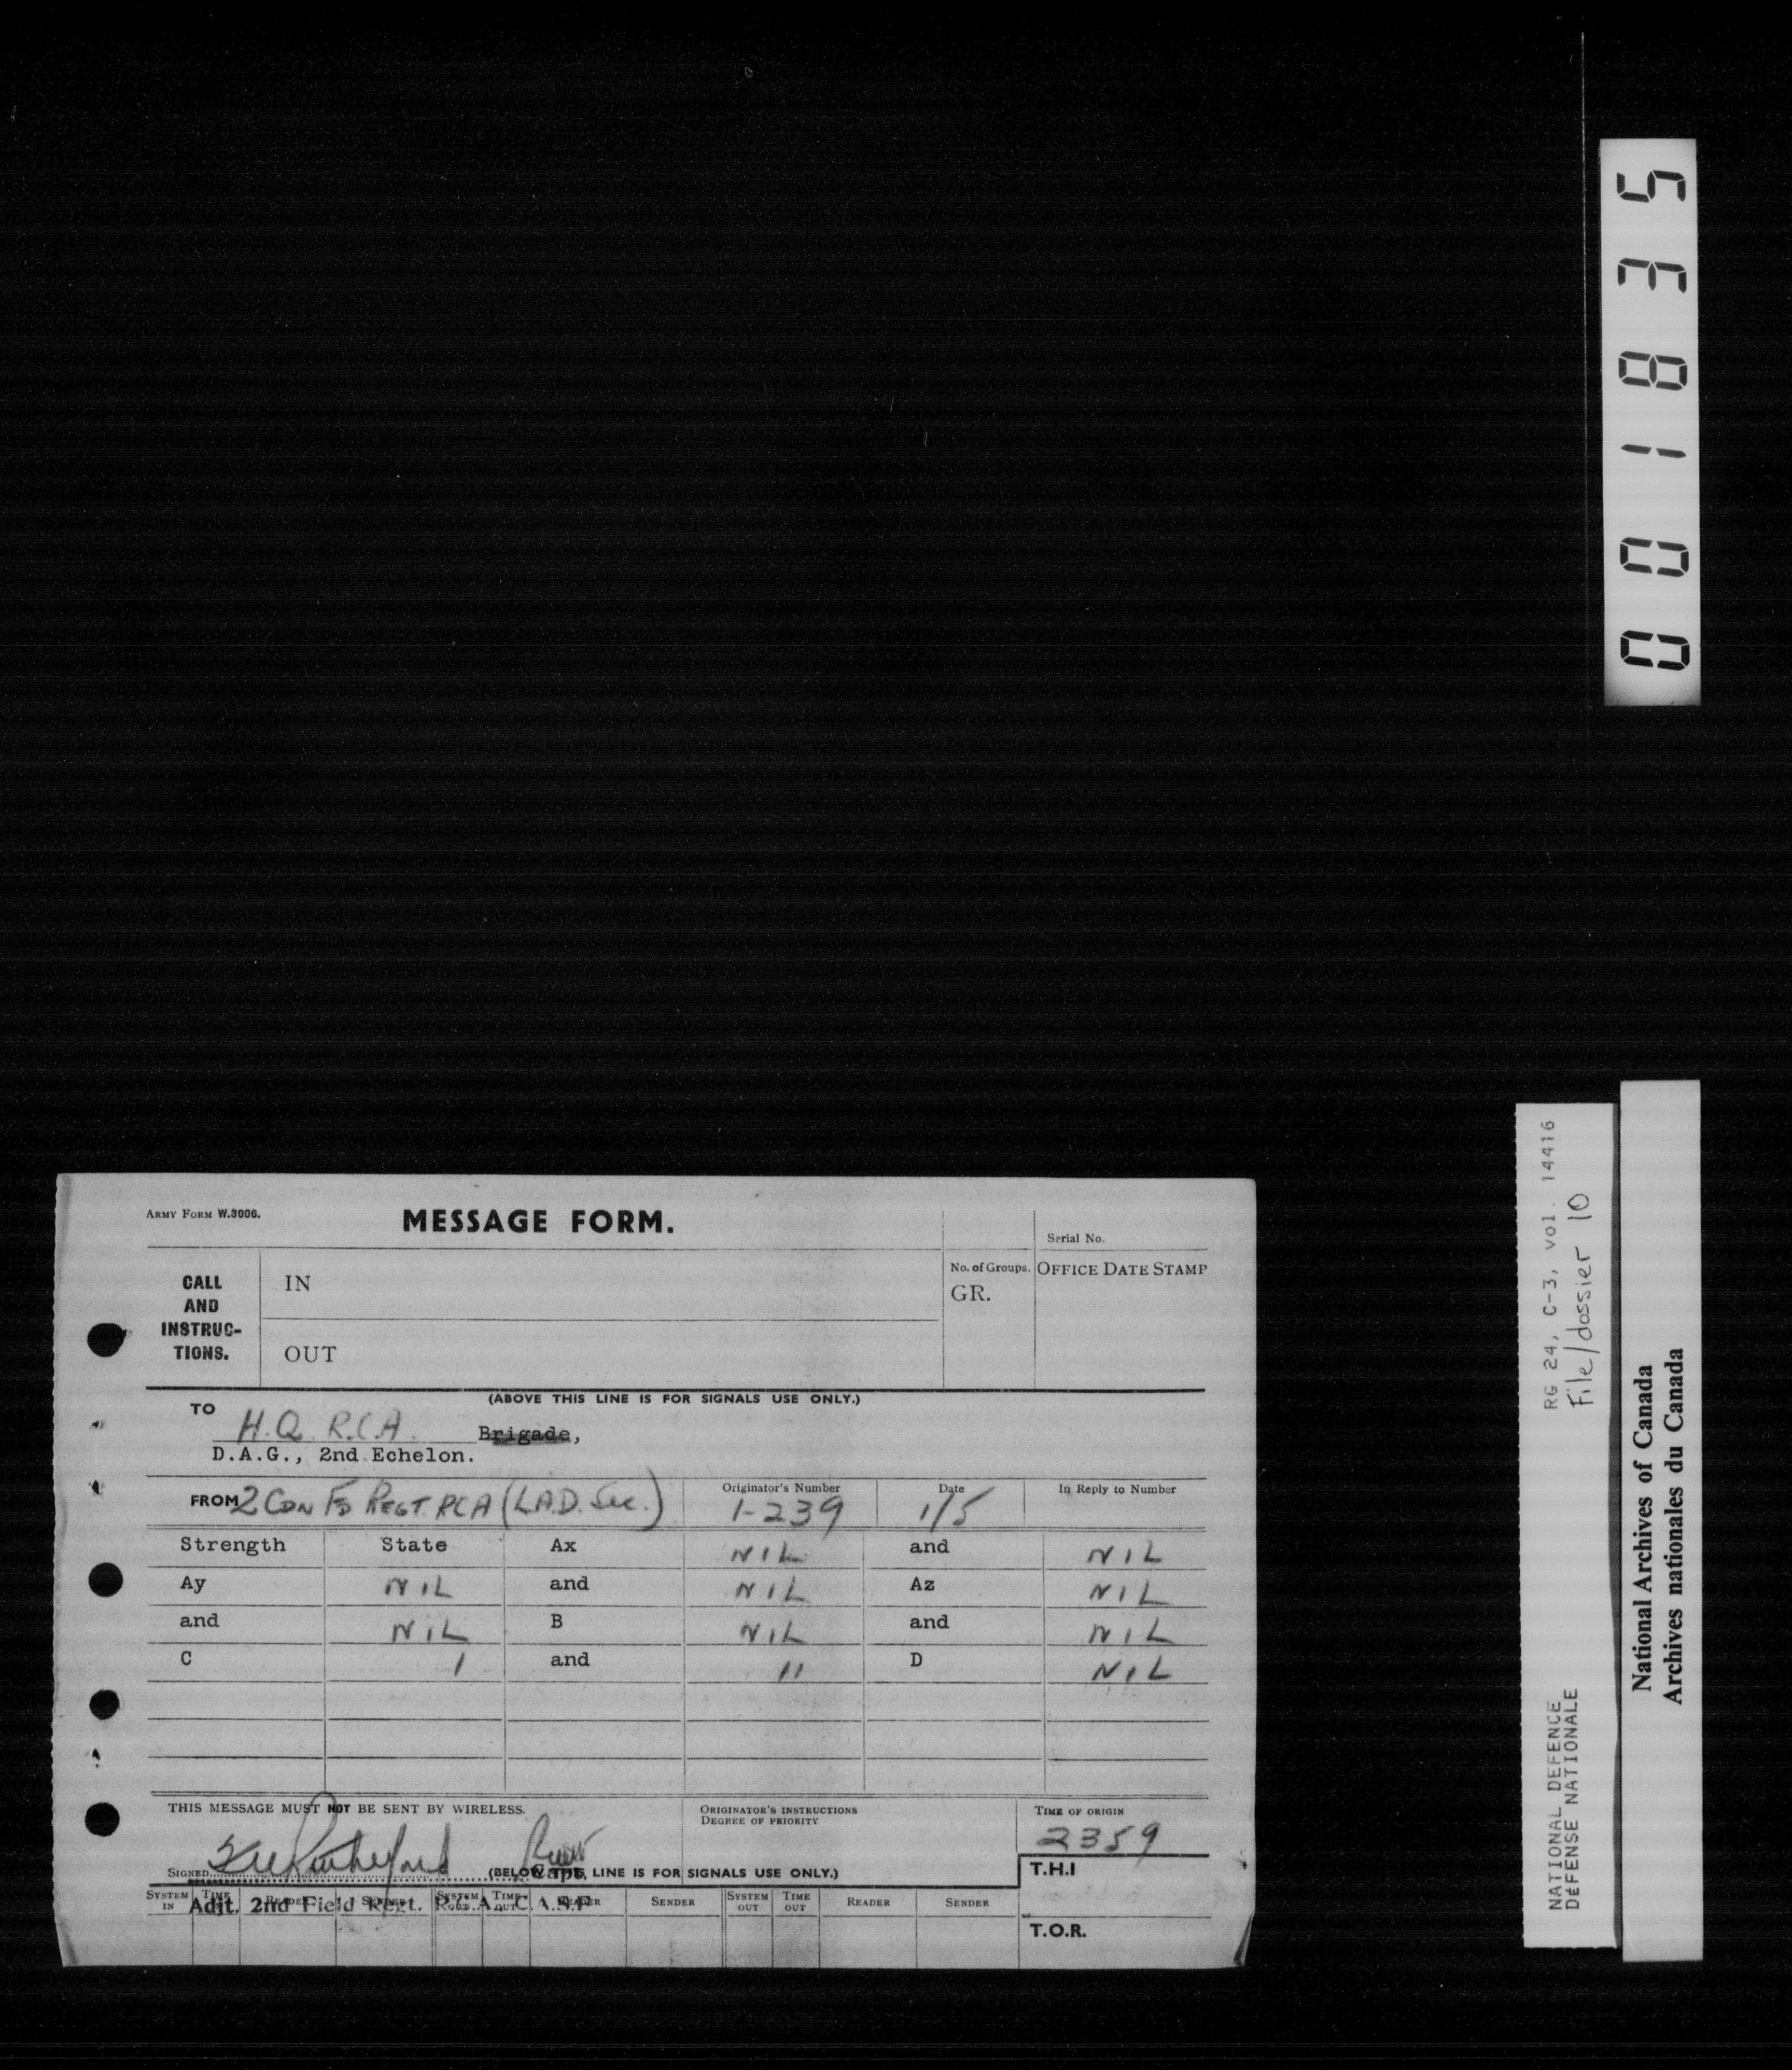 001835
ARMY FORM W.3006.
MESSAGE FORM.
Serial No.
CALL AND INSTRUC- TIONS.
IN
OUT
No. of Groups.
GR.
OFFICE DATE STAMP
(ABOVE THIS LINE IS FOR SIGNALS USE ONLY.)
TO
H.Q. R.C.A. Brigade,
D.A.G., 2nd Echelon.
FROM 2 CDN FD REGT. RCA (L.A.D. Sec.)
Originator's Number
1-239
Date
1/5
In Reply to Number
Strength State Ax NIL and NIL
Ay NIL and NIL Az NIL
and NIL B NIL and NIL
C 1 and 11 D NIL
THIS MESSAGE MUST NOT BE SENT BY WIRELESS.
ORIGINATOR'S INSTRUCTIONS
DEGREE OF PRIORITY
TIME OF ORIGIN
2359
SIGNED
Capt.
(BELOW THIS LINE IS FOR SIGNALS USE ONLY.)
T.H.I
Adjt. 2nd Field Regt. R.C.A. C.A.S.F
SYSTEM IN TIME IN READER SENDER SYSTEM OUT TIME OUT READER SENDER SYSTEM OUT TIME OUT READER SENDER
T.O.R.
RG 24, C-3, vol. 14416
File/dossier 10
NATIONAL DEFENCE
DÉFENSE NATIONALE
National Archives of Canada
Archives nationales du Canada